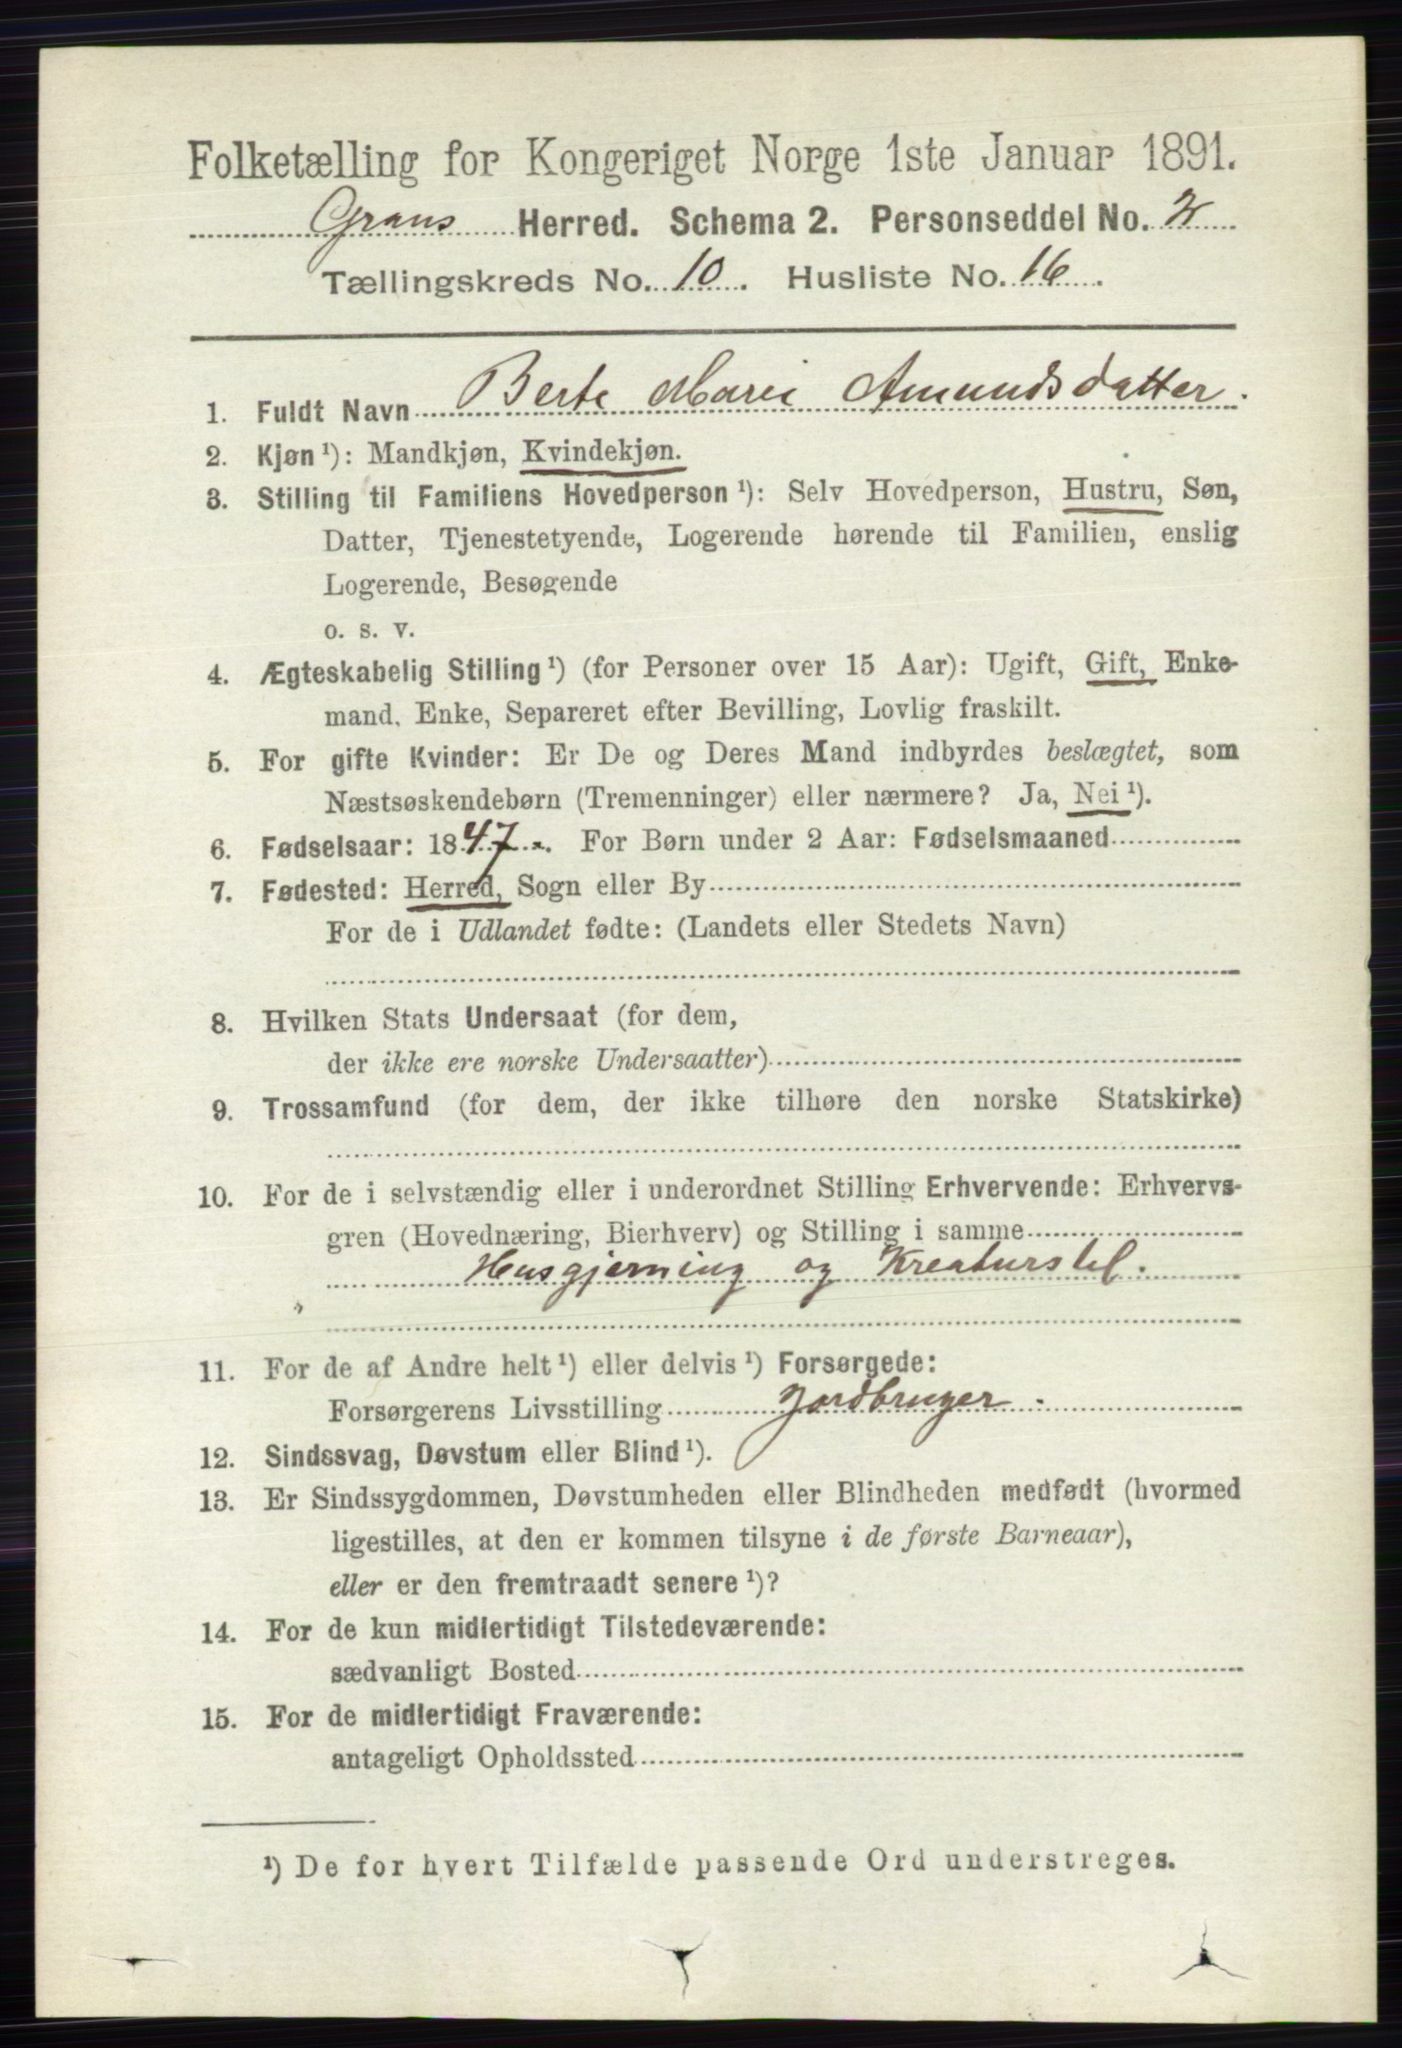 Folketælling for Kongeriget Norge 1ste Januar 1891.
Grans Herred. Schema 2. Personseddel No. 2
Tællingskreds No. 10. Husliste No. 16.
1. Fuldt Navn Berte Marie Amundsdatter.
2. Kjøn ¹): Mandkjøn, Kvindekjøn.
3. Stilling til Familiens Hovedperson ¹): Selv Hovedperson, Hustru, Søn,
Datter, Tjenestetyende, Logerende hørende til Familien, enslig
Logerende, Besøgende
o. s. v.
4. Ægteskabelig Stilling ¹) (for Personer over 15 Aar): Ugift, Gift, Enke-
mand, Enke, Separeret efter Bevilling, Lovlig fraskilt.
5. For gifte Kvinder: Er De og Deres Mand indbyrdes beslægtet, som
Næstsøskendebørn (Tremenninger) eller nærmere? Ja, Nei ¹).
6. Fødselsaar: 1847. For Børn under 2 Aar: Fødselsmaaned
7. Fødested: Herred, Sogn eller By
For de i Udlandet fødte: (Landets eller Stedets Navn)
8. Hvilken Stats Undersaat (for dem,
der ikke ere norske Undersaatter)
9. Trossamfund (for dem, der ikke tilhøre den norske Statskirke)
10. For de i selvstændig eller i underordnet Stilling Erhvervende: Erhvervs-
gren (Hovednæring, Bierhverv) og Stilling i samme
Husgjerning og Kreaturstel.
11. For de af Andre helt ¹) eller delvis ¹) Forsørgede:
Forsørgerens Livsstilling Jordbruger.
12. Sindssvag, Døvstum eller Blind ¹).
13. Er Sindssygdommen, Døvstumheden eller Blindheden medfødt (hvormed
ligestilles, at den er kommen tilsyne i de første Barneaar),
eller er den fremtraadt senere ¹)?
14. For de kun midlertidigt Tilstedeværende:
sædvanligt Bosted
15. For de midlertidigt Fraværende:
antageligt Opholdssted
¹) De for hvert Tilfælde passende Ord understreges.